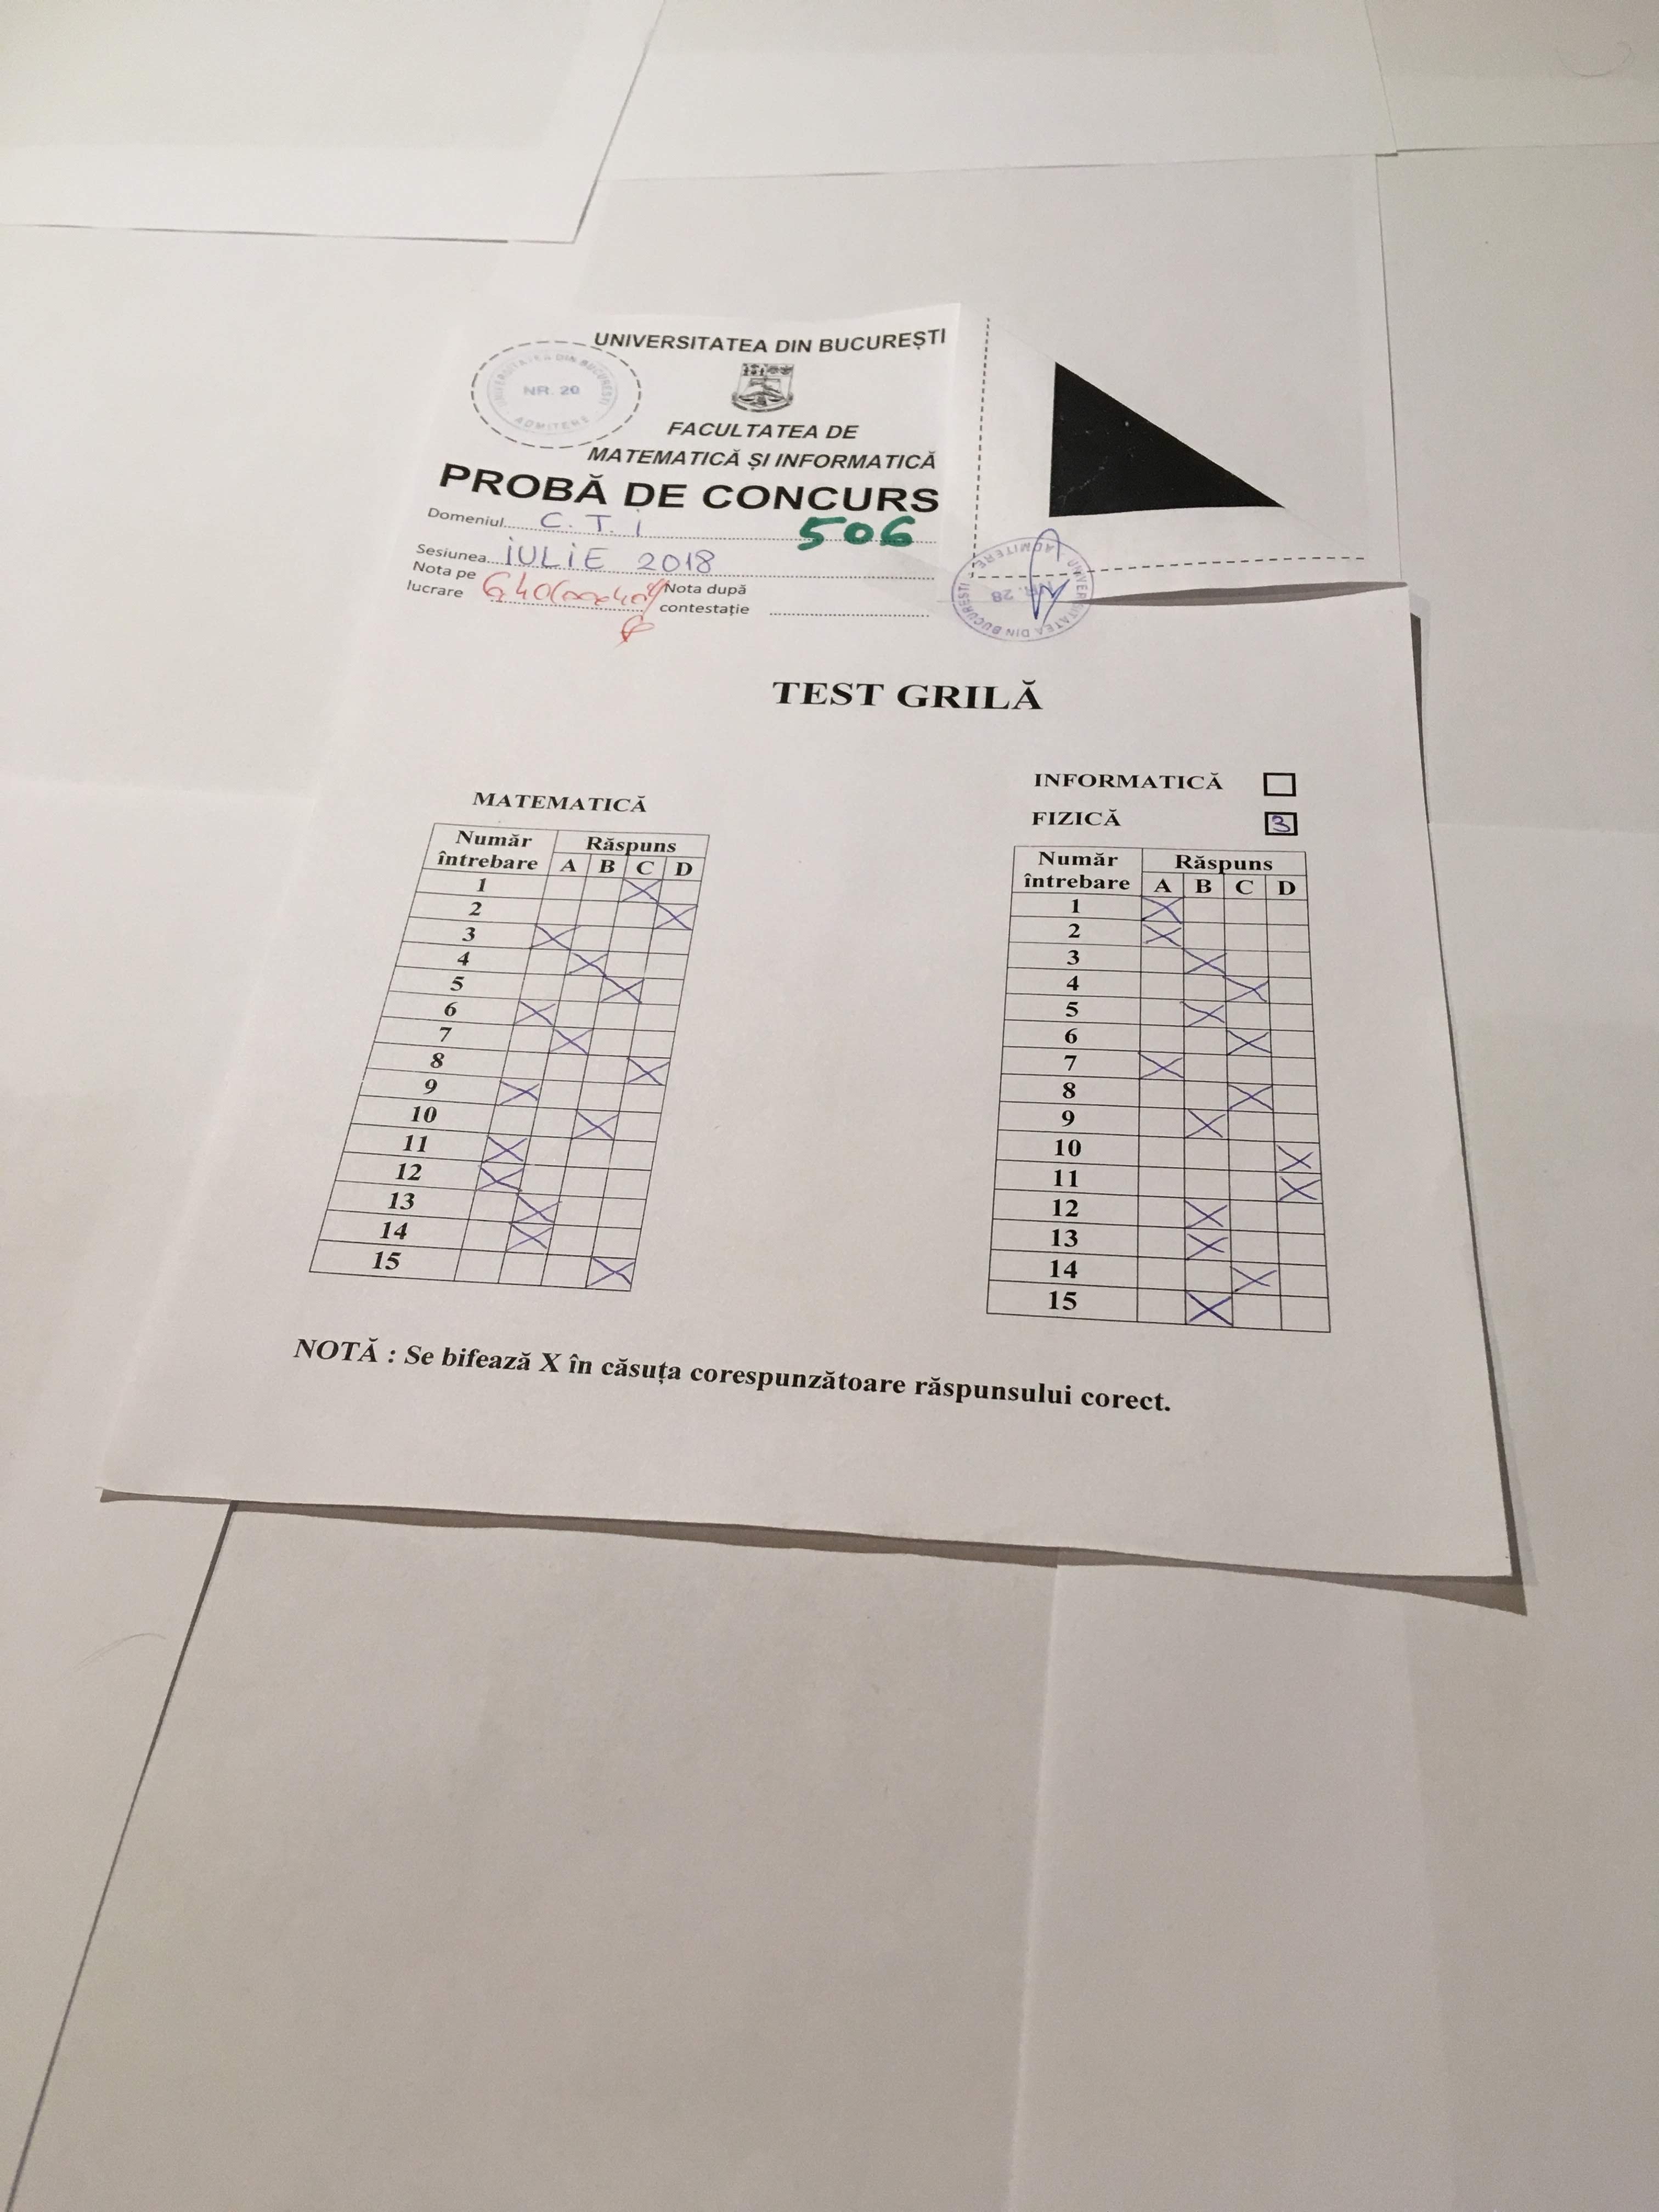 UNIVERSITATEA DIN BUCUREȘTI
UNIVERSITATEA DIN BUCUREȘTI
NR. 20
ADMITERE
FACULTATEA DE
MATEMATICĂ ȘI INFORMATICĂ
PROBĂ DE CONCURS
Domeniul C. T. I 506
Sesiunea IULIE 2018
Nota pe lucrare
Nota după contestație
UNIVERSITATEA DIN BUCUREȘTI
NR. 28
ADMITERE
TEST GRILĂ
MATEMATICĂ
Număr întrebare Răspuns
A B C D
1 X
2 X
3 X
4 X
5 X
6 X
7 X
8 X
9 X
10 X
11 X
12 X
13 X
14 X
15 X
INFORMATICĂ
FIZICĂ 3
Număr întrebare Răspuns
A B C D
1 X
2 X
3 X
4 X
5 X
6 X
7 X
8 X
9 X
10 X
11 X
12 X
13 X
14 X
15 X
NOTĂ : Se bifează X în căsuța corespunzătoare răspunsului corect.